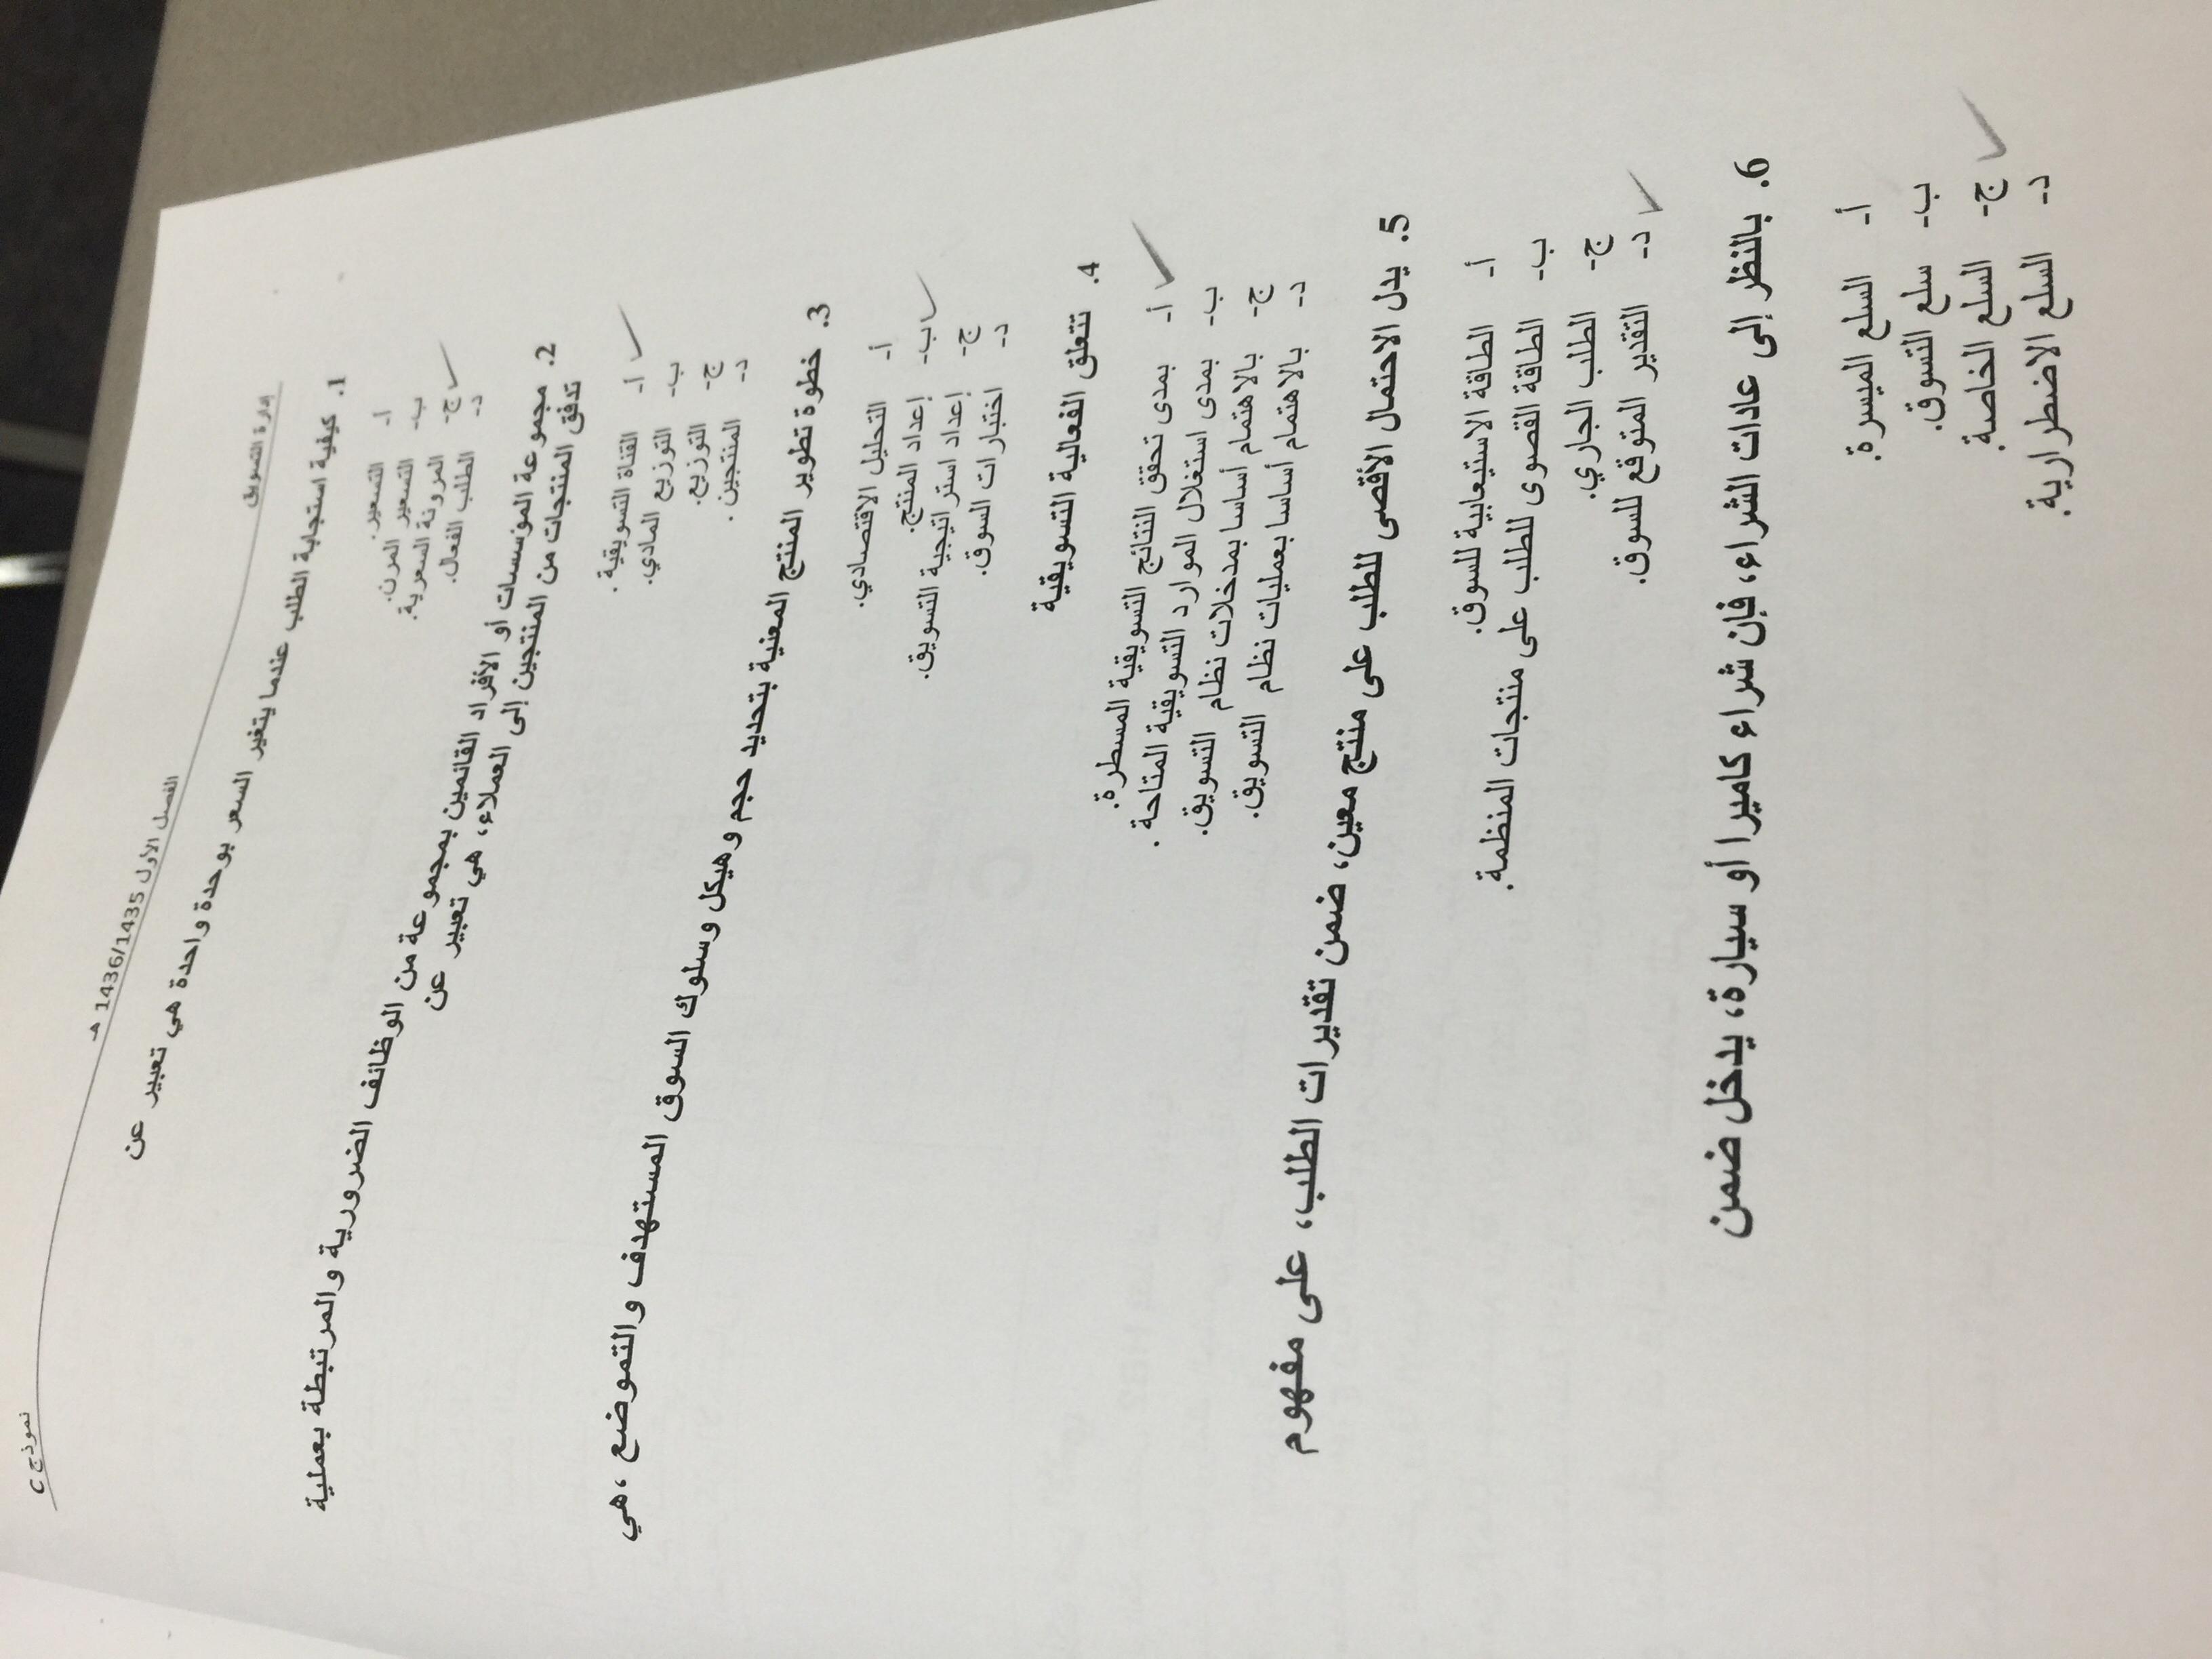 إدارة التسويق
الفصل الأول 1436/1435 هـ
نموذج C
1. كيفية استجابة الطلب عندما يتغير السعر بوحدة واحدة هي تعبير عن
أ- التسعير.
ب- التسعير المرن.
ج- المرونة السعرية.
د- الطلب الفعال.
2. مجموعة المؤسسات أو الأفراد القائمين بمجموعة من الوظائف الضرورية والمرتبطة بعملية
تدفق المنتجات من المنتجين إلى العملاء، هي تعبير عن
أ- القناة التسويقية .
ب- التوزيع المادي.
ج- التوزيع.
د- المنتجين .
3. خطوة تطوير المنتج المعنية بتحديد حجم وهيكل وسلوك السوق المستهدف والتموضع ،هي
أ- التحليل الاقتصادي.
ب- إعداد المنتج.
ج- إعداد استراتيجية التسويق.
د- اختبارات السوق.
4. تتعلق الفعالية التسويقية
أ- بمدى تحقق النتائج التسويقية المسطرة.
ب- بمدى استغلال الموارد التسويقية المتاحة .
ج- بالاهتمام أساسا بمدخلات نظام التسويق.
د- بالاهتمام أساسا بعمليات نظام التسويق.
5. يدل الاحتمال الأقصى للطلب على منتج معين، ضمن تقديرات الطلب، على مفهوم
أ- الطاقة الاستيعابية للسوق.
ب- الطاقة القصوى للطلب على منتجات المنظمة.
ج- الطلب الجاري.
د- التقدير المتوقع للسوق.
6. بالنظر إلى عادات الشراء، فإن شراء كاميرا أو سيارة، يدخل ضمن
أ- السلع الميسرة.
ب- سلع التسوق.
ج- السلع الخاصة.
د- السلع الاضطرارية.